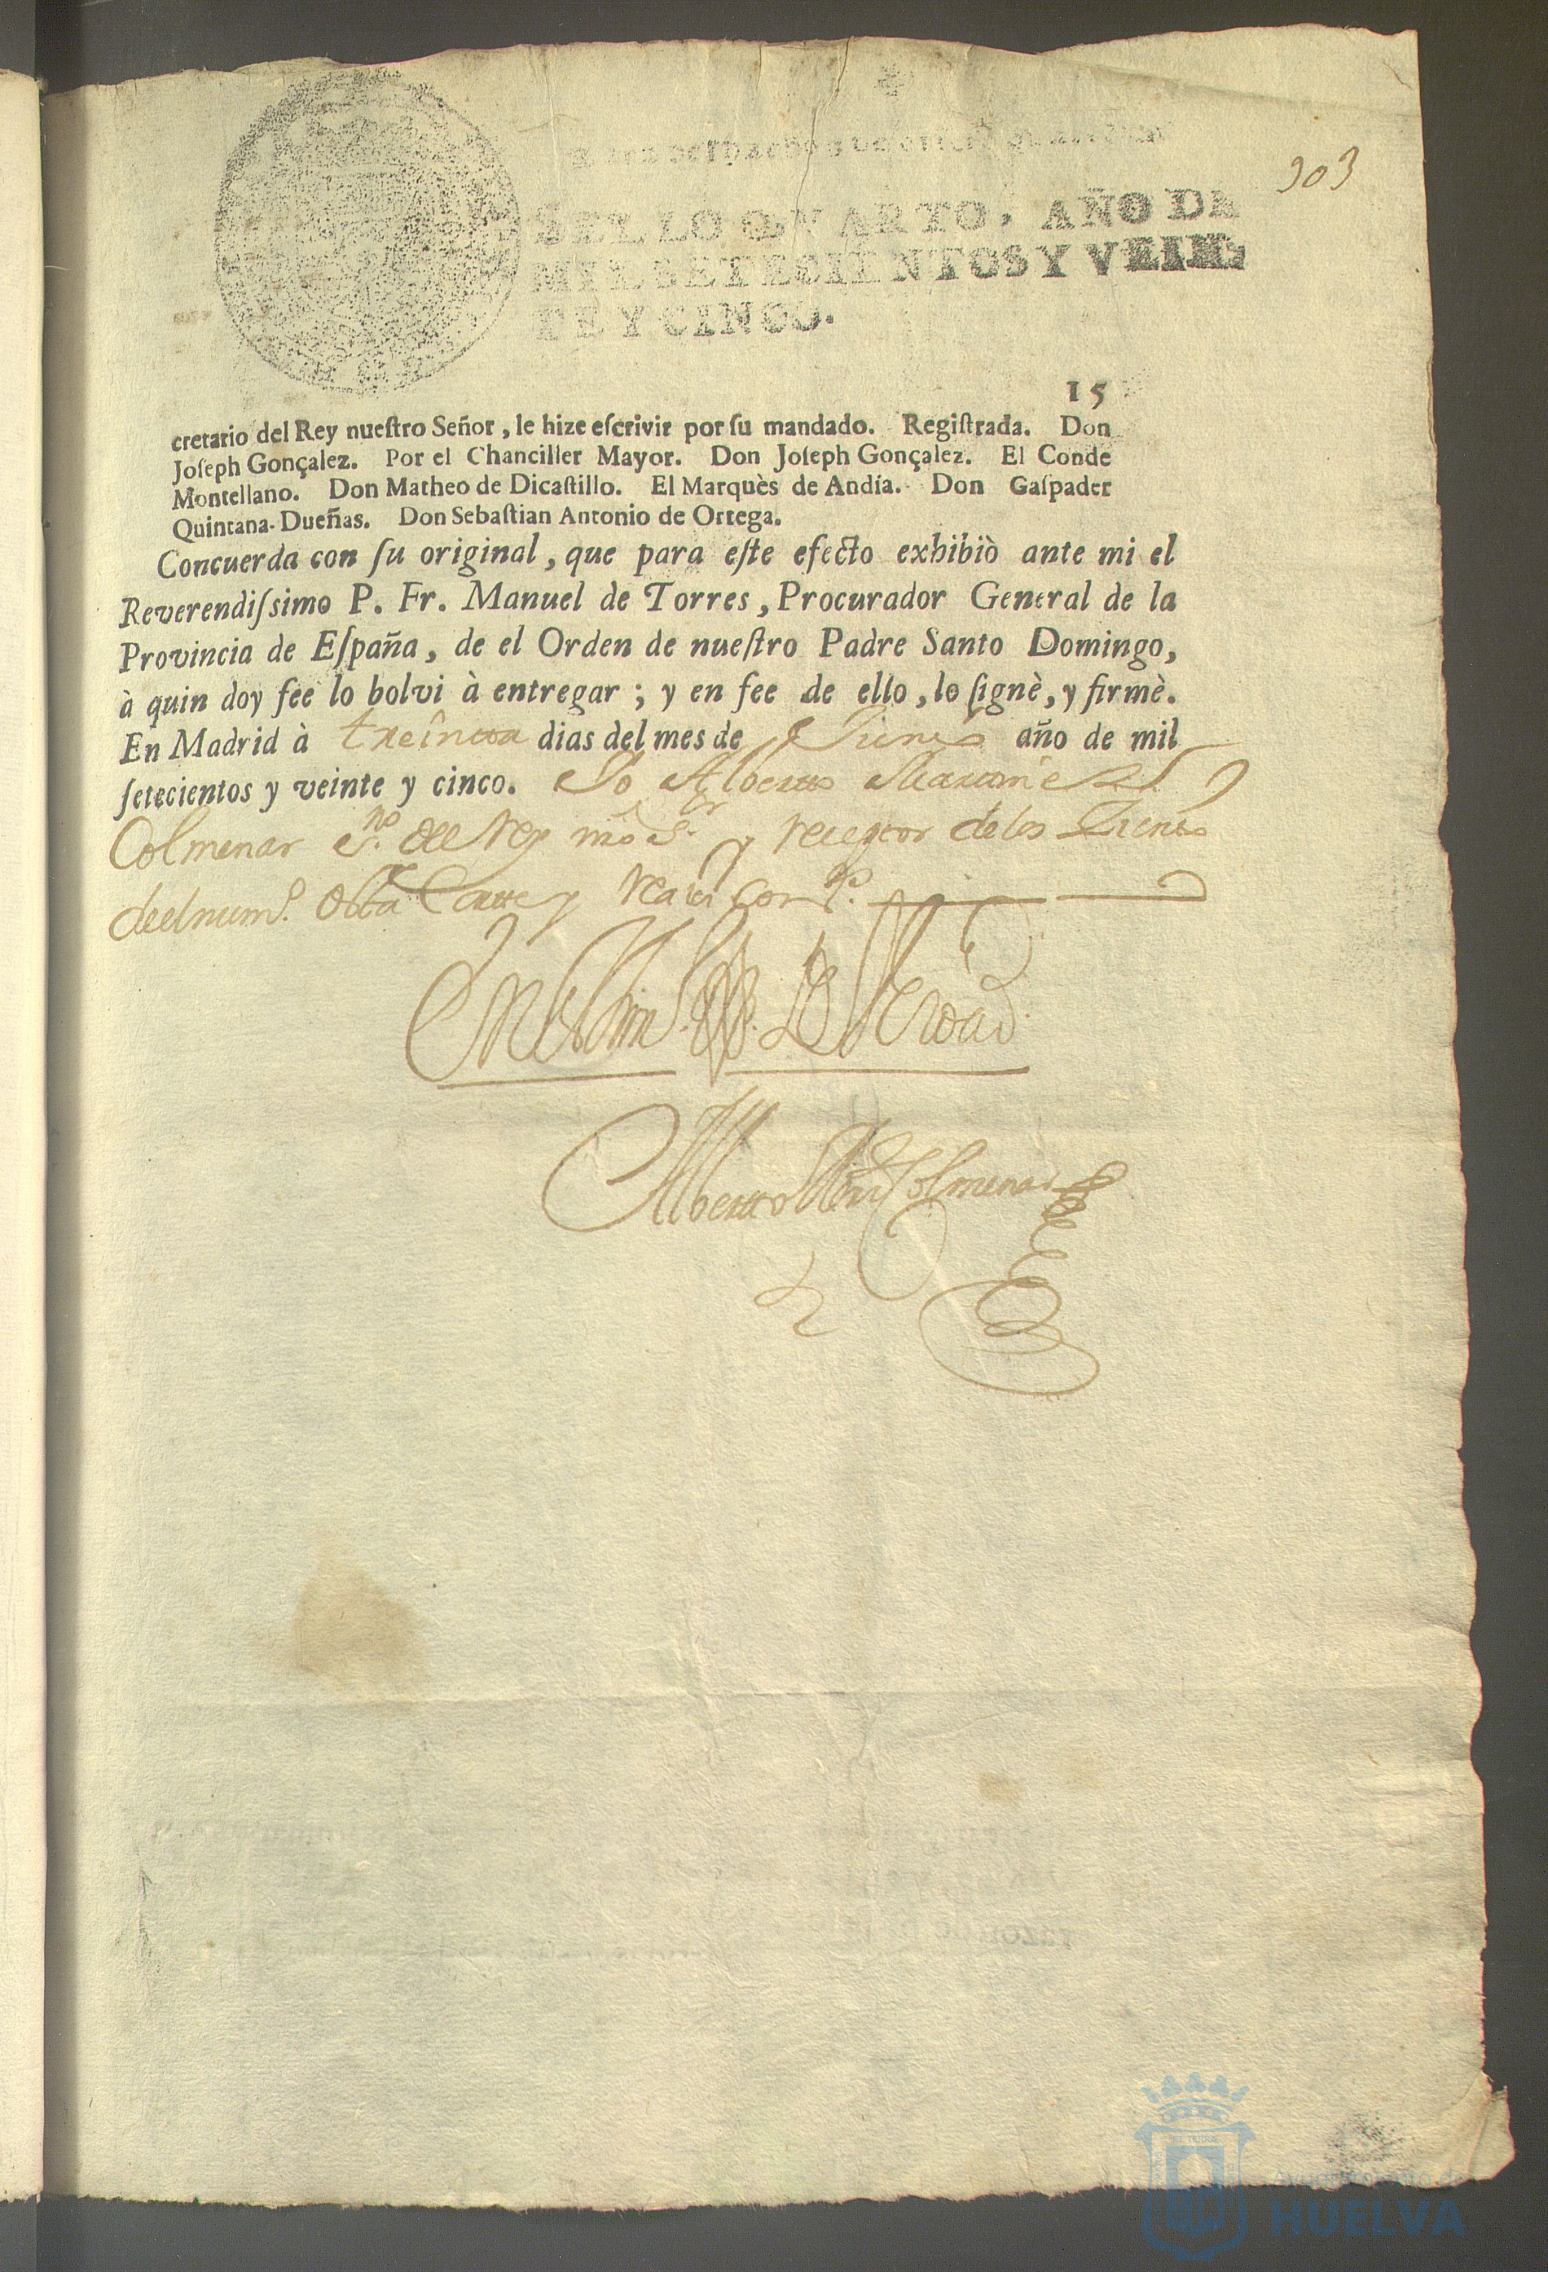 Para despachos de oficio
303
SELLO QVARTO, AÑO DE
MIL SETECIENTOS Y VEIN-
TE Y CINCO.
15
cretario del Rey nueſtro Señor, le hize eſcrivir por ſu mandado. Regiſtrada. Don
Joſeph Gonçalez. Por el Chanciller Mayor. Don Joſeph Gonçalez. El Conde
Montellano. Don Matheo de Dicaſtillo. El Marquès de Andía. Don Gaſpader
Quintana-Dueñas. Don Sebaſtian Antonio de Ortega.
Concuerda con ſu original, que para eſte efecto exhibiò ante mi el
Reverendiſsimo P. Fr. Manuel de Torres, Procurador General de la
Provincia de Eſpaña, de el Orden de nueſtro Padre Santo Domingo,
à quin doy fee lo bolvi à entregar; y en fee de ello, lo ſignè, y firmè.
En Madrid à treinta dias del mes de año de mil
ſetecientos y veinte y cinco. Yo Alberto Martinez
Colmenar sno. del Rey nro sr. y receptor de los
del num.o
en testim.o de Verdad
Alberto Colmenar
Ayuntamiento de
HUELVA